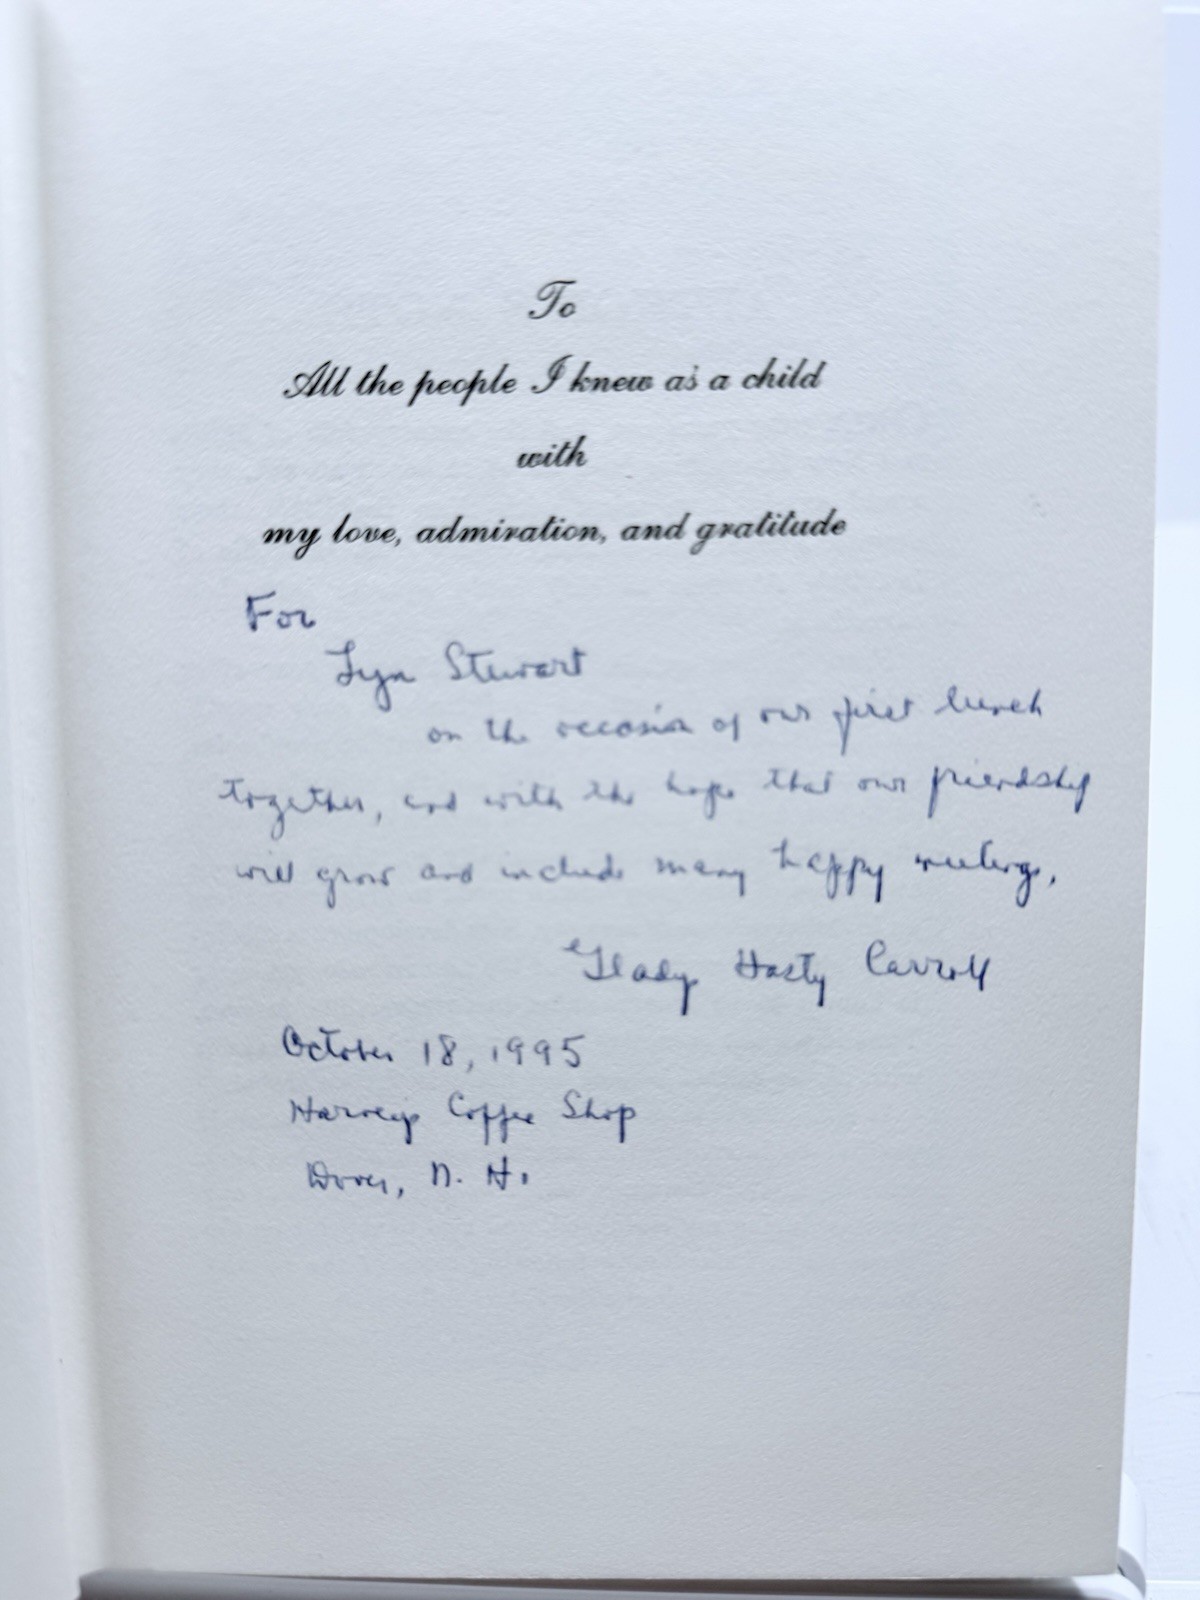 To
All the people I knew as a child
with
my love, admiration, and gratitude
For
Lyn Stewart
on the occasion of our first lunch
together, and with the hope that our friendship
will grow and include many happy meetings,
Gladys Hasty Carroll
October 18, 1995
Harvey's Coffee Shop
Dover, N. H.